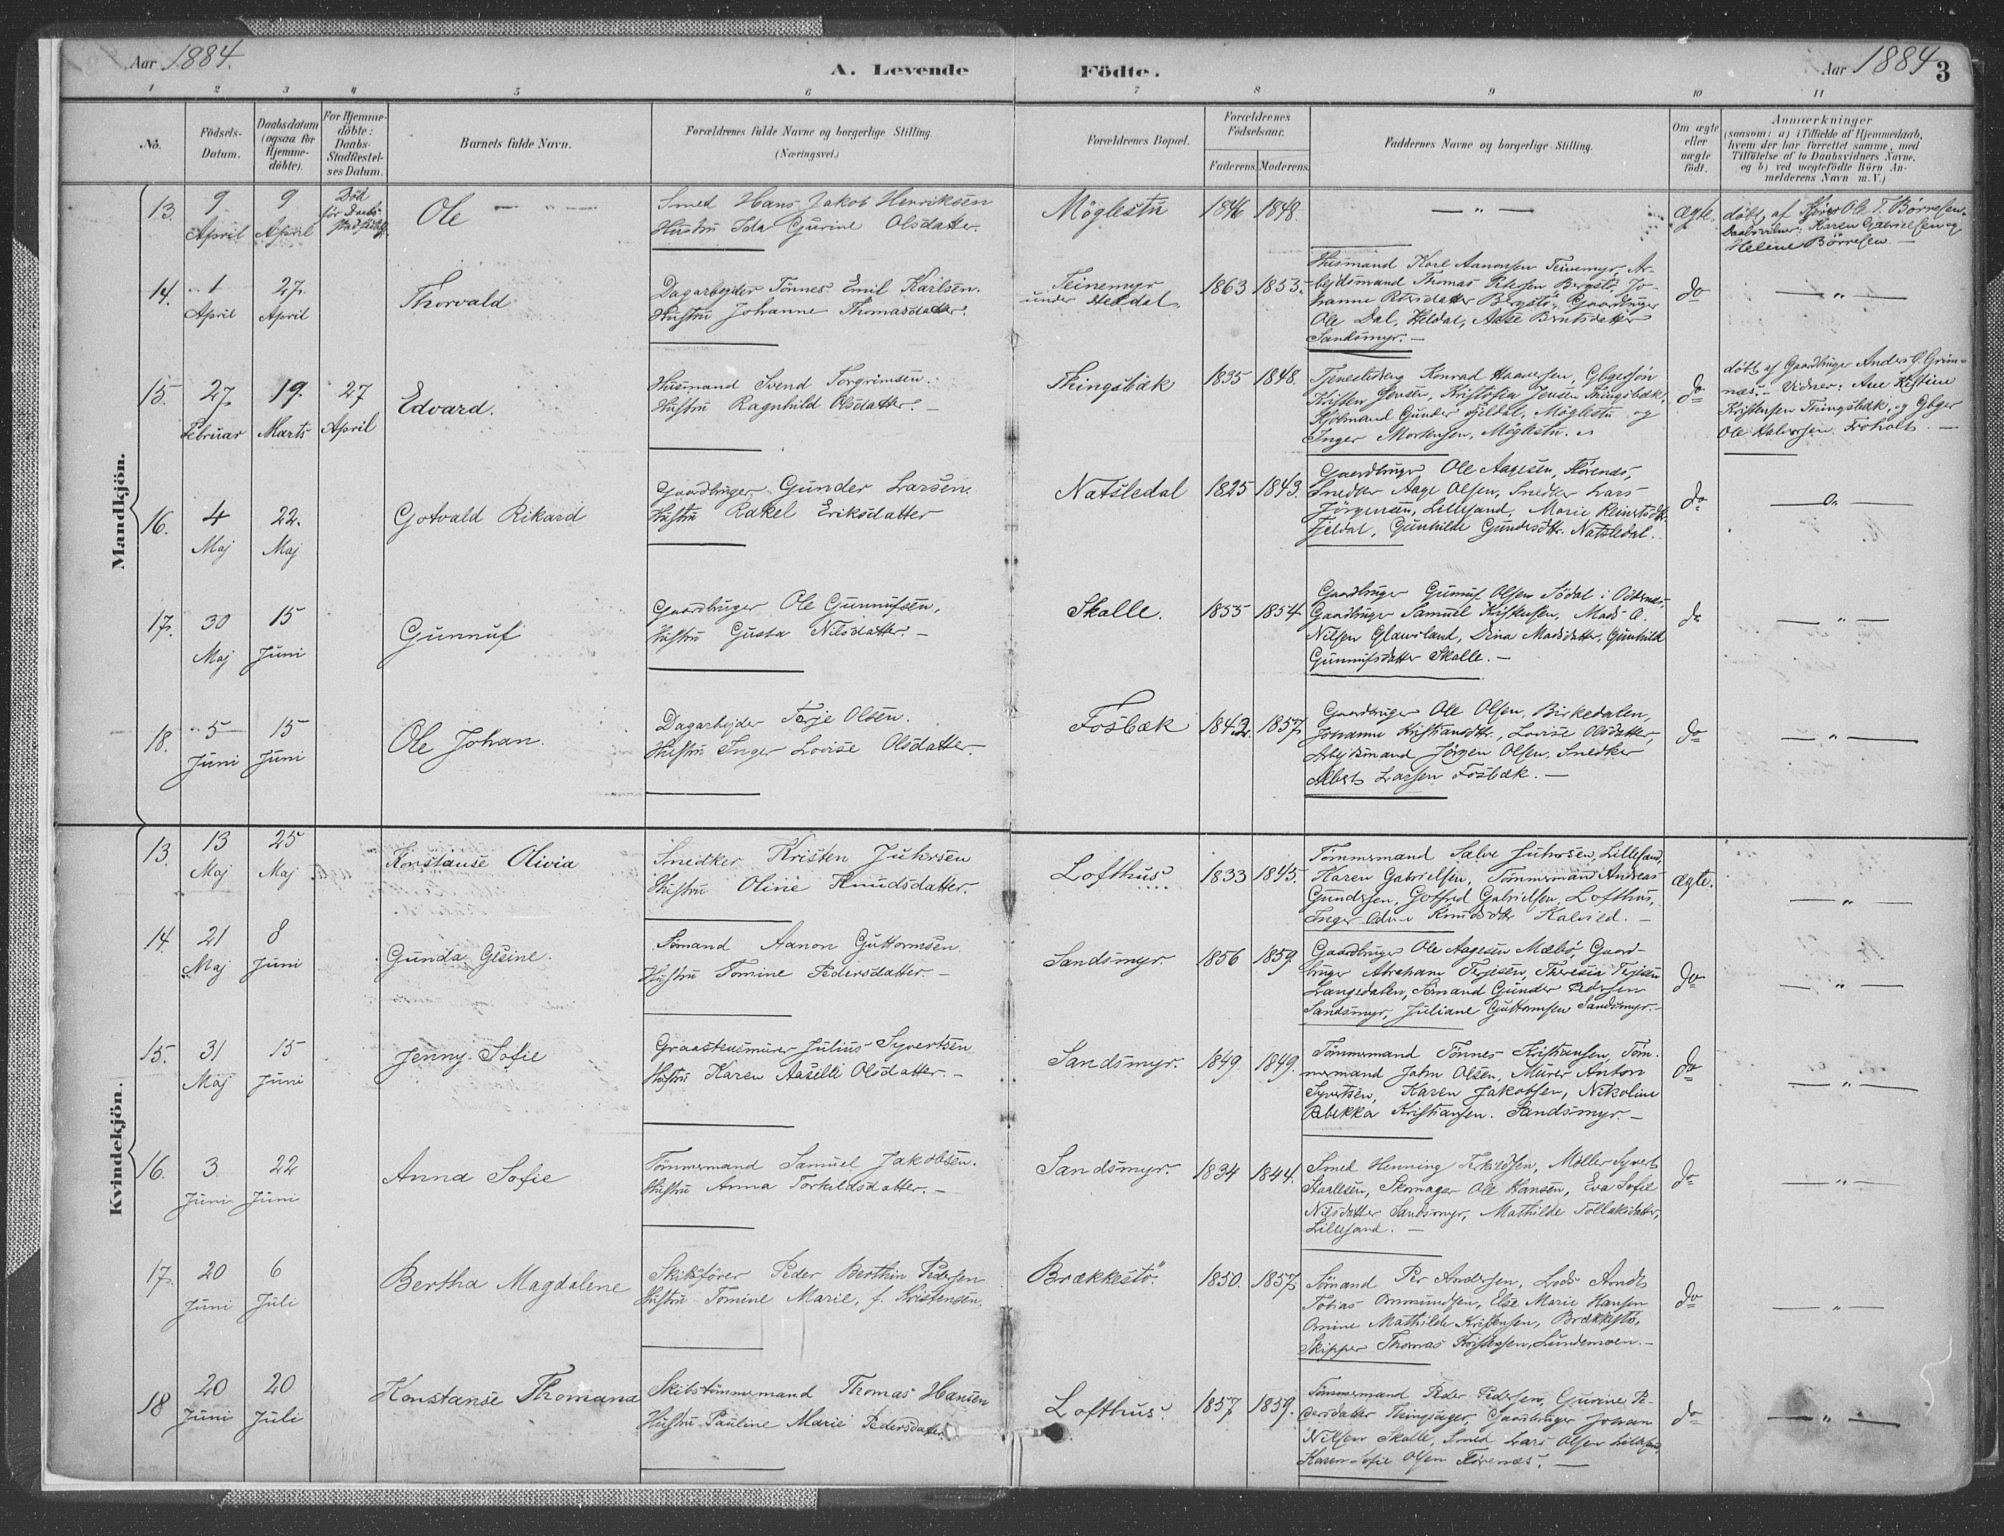 Aar 1884.
A. Levende Födte.
Aar 1884
3
1 2 3 4 5 6 7 8 9 10 11
No.
Födsels-
Datum.
Daabsdatum
(ogsaa for
Hjemme-
döbte).
For Hjemme-
döbte:
Daabs-
Stadfæstel-
ses Datum.
Barnets fulde Navn.
Forældrenes fulde Navne og borgerlige Stilling.
(Næringsvei.)
Forældrenes Bopæl.
Forældrenes
Födselsaar.
Faderens. Moderens.
Faddernes Navne og borgerlige Stilling.
Om ægte
eller
uægte
födt.
Anmærkninger
(saasom: a) i Tilfælde af Hjemmedaab,
hvem der har forrettet samme, med
Tilföielse af to Daabsvidners Navne,
og b) ved uægtefödte Börn An-
melderens Navn m. V.)
Mandkjön.
13.
9
April
9
April
Död
før Daabs-
Ole
Smed Hans Jakob Henriksen
Hustru Ida Gurine Olsdatter.
Möglestu
1846 1848.
— „ —
ægte.
døbt af Ole T. Börresen.
Daabsvidner: Karen Gabrielsen og
Helene Börresen. —
14.
1
April
27.
April
Thorvald
Dagarbejder Tönnes Emil Karlsen.
Hustru Johanne Thomasdatter.
Teinemyr
under Heldal
1863 1853.
Husmand Karl Aanonsen Teinemyr, Ar-
bejdsmand Thomas Bergstö, Jo-
hanne Bergstö, Gaardbruger
Ole Dal, Heldal, Aase Berntsdatter
Sandsmyr. —
do
— „ —
15.
27.
Februar
19.
Marts
27
April
Edvard.
Husmand Svend Torgrimsen.
Hustru Ragnhild Olsdatter. —
Thingsbæk
1835 1848.
Konrad
Kristen Jensen, Kristofia Jensen Thingsbæk,
Gunder Fjeldal, Möglestu og
Inger Mortensen, Möglestu.
do
døbt af Gaardbruger Anders G. Grim-
næs. Vidner: Ane Kistine
Kristensen Thingsbæk, og
Ole Halvorsen Froholt. —
16.
4
Maj
22.
Maj
Gotvald Rikard
Gaardbruger Gunder Larsen.
Hustru Rakel Eriksdatter
Natsledal
1825 1843.
Gaardbruger Ole Aagesen, Florenæs,
Snedker Aage Olsen, Snedker Lars
Jörgensen, Lillesand, Marie
Fjeldal, Gunhilde Gundersdtr. Natsledal.
do
— „ —
17.
30
Maj
15
Juni
Gunnuf
Gaardbruger Ole Gunnufsen,
Hustru Gusta Nilsdatter. —
Skalle.
1855 1854.
Gaardbruger Gunnuf Olsen Södal i
Gaardbruger Samuel Kristensen, Mads O.
Nilsen Glamsland, Dina Madsdatter, Gunhild
Gunnufsdatter Skalle. —
do
— „ —
18.
5
Juni
15
Juni
Ole Johan.
Dagarbejder Terje Olsen.
Hustru Inger Lovise Olsdatter. —
Fosbæk
1842. 1857.
Gaardbruger Ole Olsen, Birkedalen,
Johanne Kristiansdtr., Lovise Olsdatter,
Arbejdsmand Jörgen Olsen, Snedker
Albert Larsen Fosbæk. —
do
— „ —
Kvindekjön.
13.
13
Maj
25
Maj
Konstanse Olivia
Snedker Kristen Juhrsen
Hustru Oline Knudsdatter. —
Lofthus.
1833 1845.
Tömmermand Salve Juhrsen, Lillesand,
Karen Gabrielsen, Tömmermand Andreas
Gundersen, Gotfred Gabrielsen, Lofthus,
Inger Knudsdtr Kalvild. —
ægte.
— „ —
14.
21
Maj
8
Juni
Gunda Gesine.
Sömand Aanon Guttormsen
Hustru Tomine Pedersdatter. —
Sandsmyr.
1856 1859.
Gaardbruger Ole Aagesen Mæbö, Gaard-
bruger Abraham Terjesen, Theresia Terjesen
Langedalen, Sömand Gunder Pedersen
Sandsmyr, Juliane Guttormsen Sandsmyr. —
do
— „ —
15.
31
Maj
15
Juni
Jenny Sofie
Graastensmurer Julius Syvertsen
Hustru Karen Aaselli Olsdatter. —
Sandsmyr.
1849 1849.
Tömmermand Tönnes Kristiansen, Töm-
mermand John Olsen, Murer Anton
Syvertsen, Karen Jakobsen, Nikoline
Rebekka Kristiansen. Sandsmyr. —
do
— „ —
16.
3.
Juni
22
Juni
Anna Sofie
Tömmermand Samuel Jakobsen.
Hustru Anna Torkildsdatter. —
Sandsmyr.
1834 1844.
Smed Henning Terkildsen, Möller Syvert
Skomager Ole Hansen, Eva Sofie
Nilsdatter Sandsmyr, Mathilde Tollaksdatter,
Lillesand. —
do
— „ —
17.
20
Juni
6
Juli
Bertha Magdalene
Skibsförer Peder Berthin Pedersen
Hustru Tomine Marie, f. Kristensen.
Brækkestö.
1850. 1857.
Sömand Per Andersen, Lods Arndt
Tobias Ommundsen, Else Marie Hansen
Omine Mathilde Kristensen, Brækkestö,
Skipper Thomas Kristensen, Lundemoen. —
do
— „ —
18
20
Juni
20
Juli
Konstanse Thomana
Skibstömmermand Thomas Hansen
Hustru Pauline Marie Pedersdatter.
Lofthus.
1857 1859.
Tömmermand Peder Pedersen, Gurine Pe-
dersdatter Gaardbruger Johan
Nilsen Skalle, Smed Lars Olsen
Karen Sofie Olsen Florenæs. —
do
— „ —